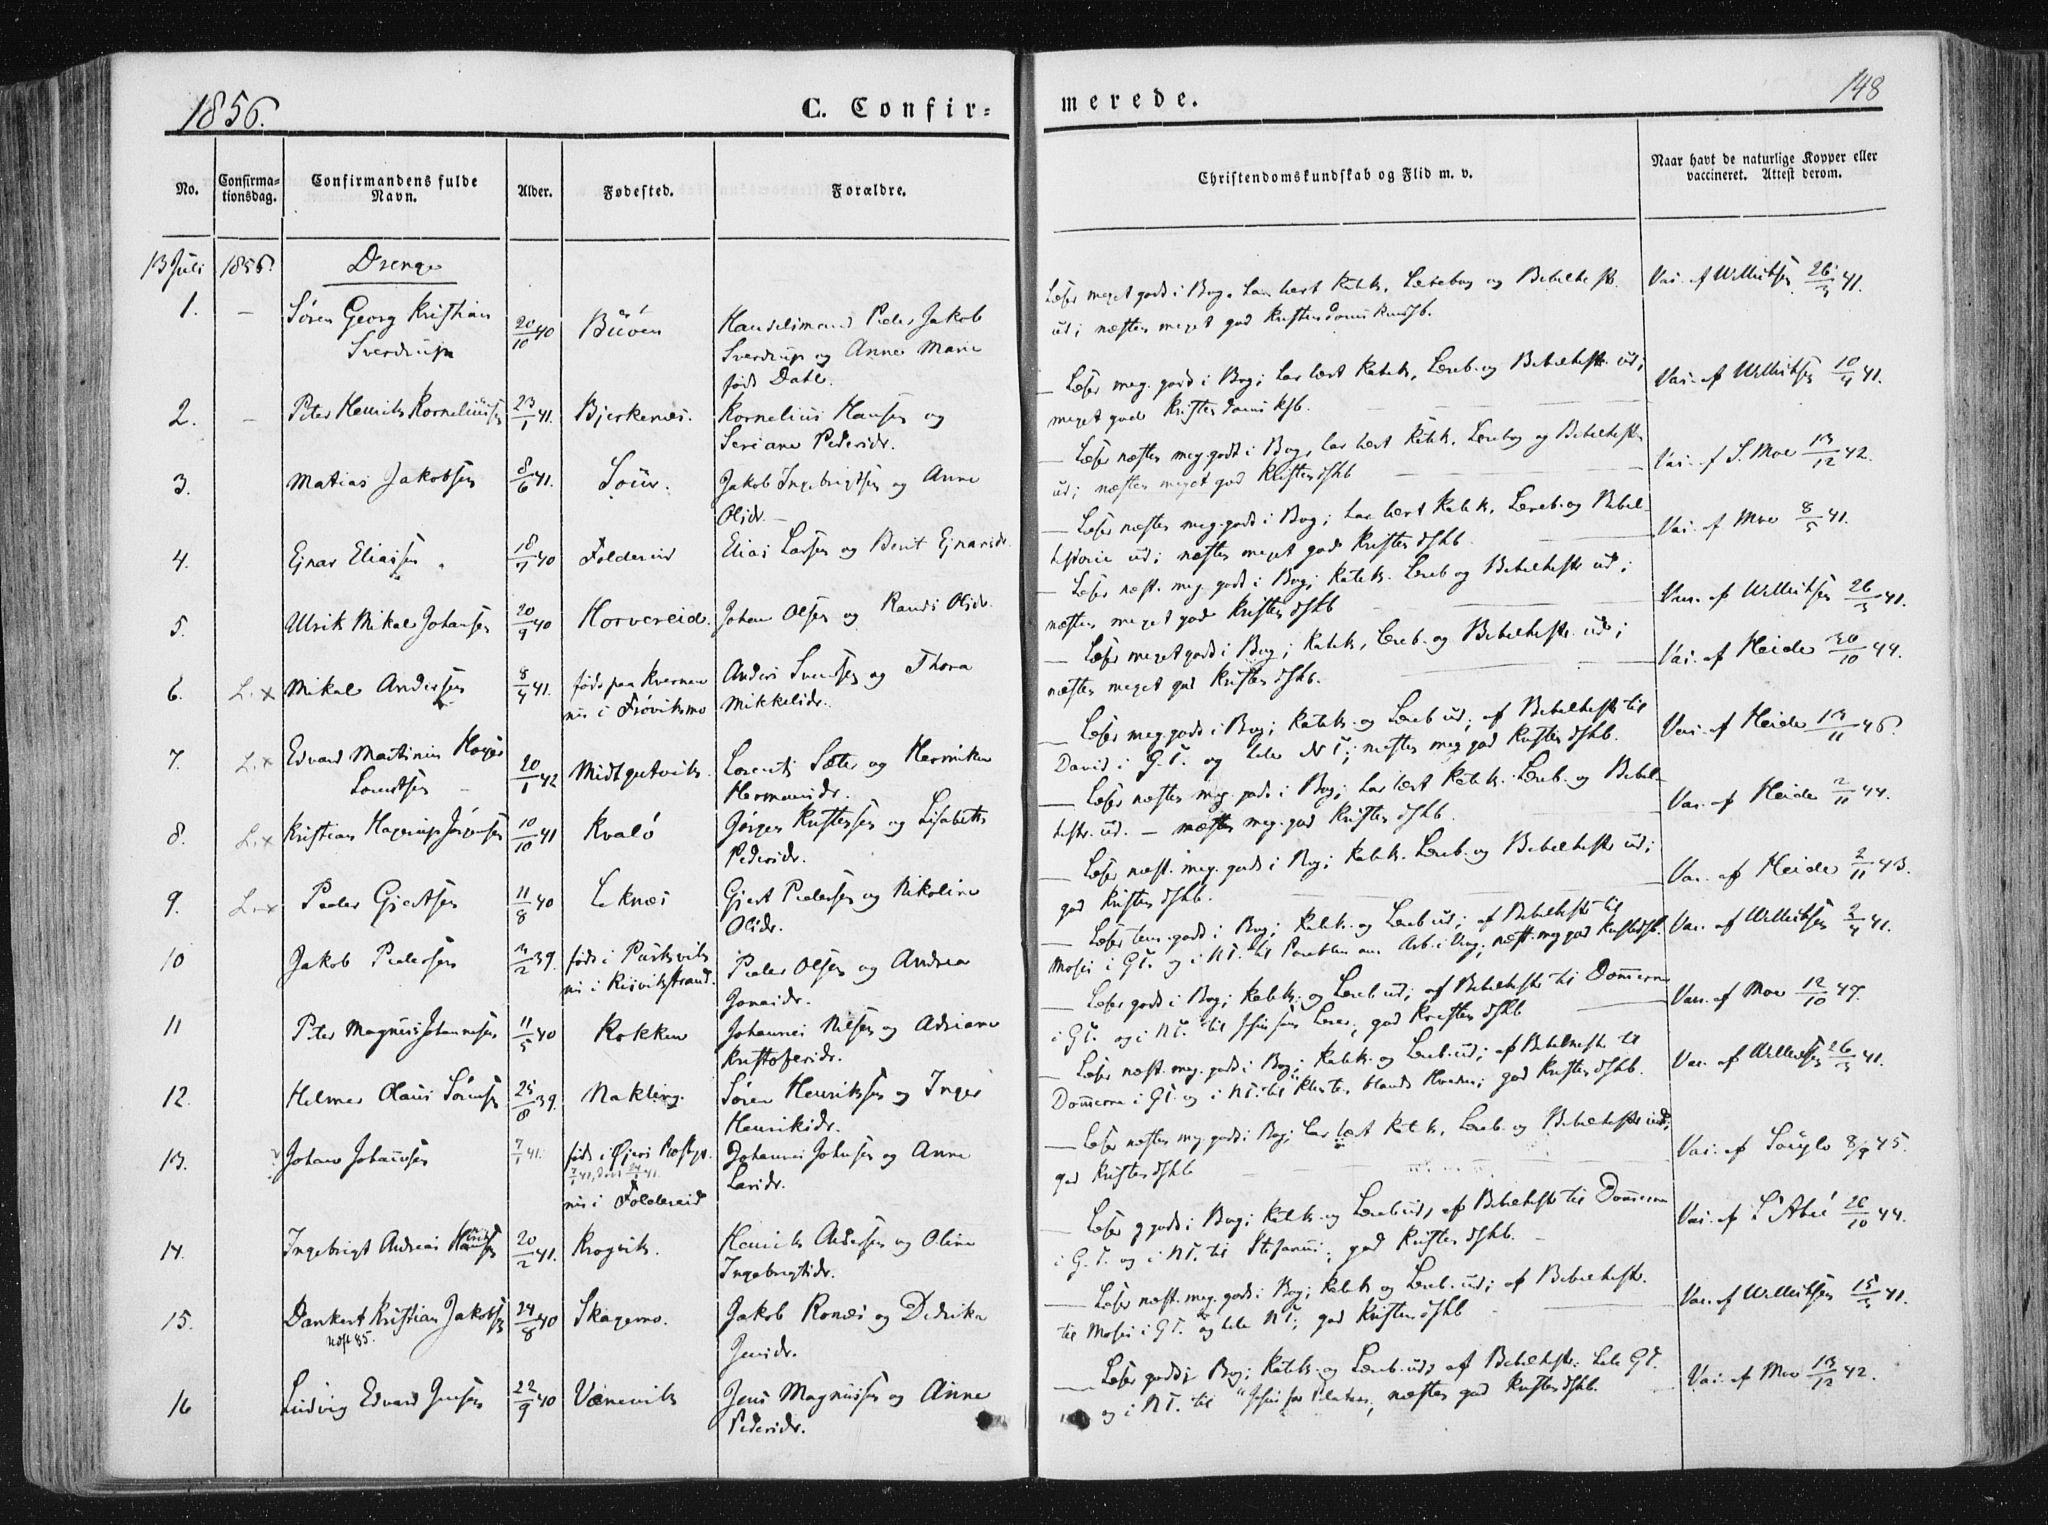 1856.
C. Confir=
merede.
148
No.
Confirma=
tionsdag.
Confirmandens fulde
Navn.
Alder.
Fødested.
Forældre.
Christendomskundskab og Flid m. v.
Naar havt de naturlige Kopper eller
vaccineret. Attest derom.
13 Juli 1856. Drenge
1. Søren Georg Kristian 20/10 40 Handelsmand Peder Jakob
Sverdrup Sverdrup og Anne Marie
født Dahl.
Læser meget godt i Bog, har lært Katek. Lærebog og Bibelhistr.
ud; næsten meget god Kristendomskundsk.
Vac. af Willutsen 26/3 41.
2. Peter Henrik Korneliussen 23/1 41. Bjerkenæs. Kornelius Hansen og
Seriane Pedersdr.
Læser meg. godt i Bog; har lært Katek. Læreb. og Bibelhistr. ud;
meget god Kristendomsksb.
Vac. af Willutsen 10/4 41.
3. Matias Jakobsen 8/6 41. Jakob Ingebrigtsen og Anne
Olsdr.
Læser næsten meg. godt i Bog, har lært Katek. Lærebog og Bibelhistr
ud; næsten meget god Kristendskb
Vac. af S. Moe 13/12 42.
4. Ejnar Eliassen 18/7 40 Foldereid Elias Larsen og Berit Ejnarsdr.
Læser næsten meg. godt i Bog; har lært Katek. Læreb. og Bibel-
historie ud; næsten meget god Kristendskb.
Vac. af Moe 8/5 41.
5. Ulrik Mikal Johansen 20/9 40 Horvereid. Johan Olsen og Randi Olsdr.
Læser næst. meg. godt i Bog; Katek. Læreb og Bibelhistr ud;
næsten meget god Kristendskb
Vac. af Willutsen 26/3 41.
6. L. x Mikal Andersen 8/4 41. født paa Kvernæs Anders Svendsen og Thora
nu i Frøviksmo Mikkelsdr.
Læser meget godt i Bog; Katek, Læreb. og Bibelhistr. ud;
næsten meget god Kristendskb.
Vac. af Heide 30/10 44.
7. L. x Edvard Martinus Høyer 20/1 42 Midtgutvik. Lorents Sæter og Henrikke
Lorentsen Hermansdr.
Læser meg. godt i Bog; Katek. og Læreb ud; af Bibelhistr til
David i G.T. og hele N.T.; næsten meg god Kristendskb.
Vac. af Heide 13/11 46.
8. L. x Kristian Hagerup Jørgensen 10/10 41 Kvalø Jørgen Kristensen og Lisabeth
Pedersdr.
Læser næsten meg. godt i Bog; har lært Katek. Læreb. og Bibel-
histr. ud. – næsten meg. god Kristendskb.
Vac. af Heide 2/11 44.
9. L. x Peder Gjertsen 11/8 40 Leknæs Gjert Pedersen og Nikoline
Olsdr.
Læser næst. meg. godt i Bog; Katek. Læreb. og Bibelhistr ud;
god Kristendskb.
Vac. af Heide 2/11 43.
10 Jakob Pedersen 3/2 39. født i Peder Olsen og Andrea
nu i Risvikstrand. Jonasdr.
Læser tem. godt i Bog; Katek. og Læreb ud; af Bibelhistr til
Moses i G.T. og i N.T. til Parablen om Arb. i Ving. næst. meg god Kristdskb.
Vac. af Willutsen 2/4 41.
11 Peter Magnus Johannesen 11/5 40 Kokken Johannes Nilsen og Adriane
Kristofersdr.
Læser godt i Bog; Katek. og Læreb. ud; af Bibelhistr til Dommerne
i G.T. og i N.T. til Jesu sons Lerer; god Kristendskb
Vac. af Moe 12/10 47.
12. Helmer Olaus Sørensen 25/8 39. Nakling. Søren Henriksen og Inger
Henriksdr.
Læser næst. meg. godt i Bog; Katek. og Læreb. ud; af Bibelhistr til
Dommerne i G.T. og i N.T. til Klinten blandt Hveden; god Kristendskb.
Vac. af Willutsen 26/3 41.
13. Johan Johansen 7/1 41. født i Præstgj. Johannes Johnsen og Anne
nu i Foldereid Larsdr.
Læser næsten meg godt i Bog; har lært Katek, Læreb. og Bibelhistr ud;
god Kristendskb
Vac. af 8/9 45.
14. Ingebrigt Andreas Henriksen 20/2 41. Krogvik. Henrik Andersen og Oline
Ingebrigtsdr.
Læser g godt i Bog; Katek. og Læreb ud; af Bibelhistr til Dommerne
i G.T. og i N.T. til Stefanus; god Kristendskb.
Vac. af 26/10 44.
15. Dankert Kristian Jakobsen 24/8 40 Skagemo. Jakob Ronæs og Didrika
ndst 85. Jensdr.
Læser næst. meg. godt i Bog; Katek og Læreb. ud; af Bibelhistr.
til Moses i G.T. og hele N.T; god Kristendskb
Vac. af Willutsen 15/3 41.
16 Ludvig Edvard Jensen 22/9 40 Værevik Jens Magnussen og Anne
Pedersdr.
Læser godt i Bog; Katek. og Læreb. ud; af Bibelhistr. hele G.T.
og i N.T. til "Jesus for Pilatus; næsten god Kristendskb.
Vac. af Moe 13/12 42.